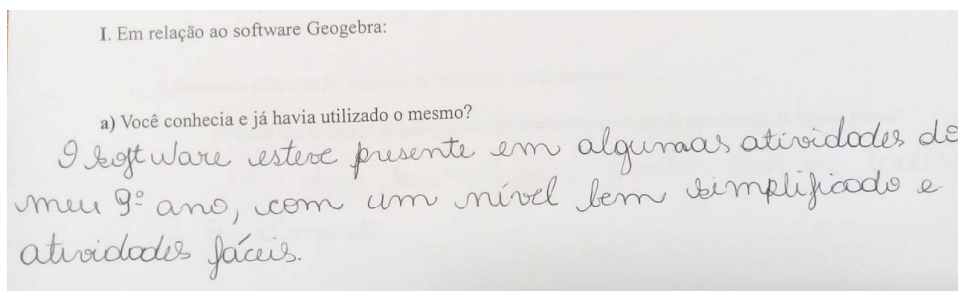 I. Em relação ao software Geogebra:
a) Você conhecia e já havia utilizado o mesmo?
O software esteve presente em algumas atividades do
meu 9º ano, com um nível bem simplificado e
atividades fáceis.